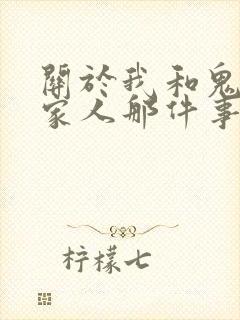 關於我和鬼
家人那件事
柠檬七